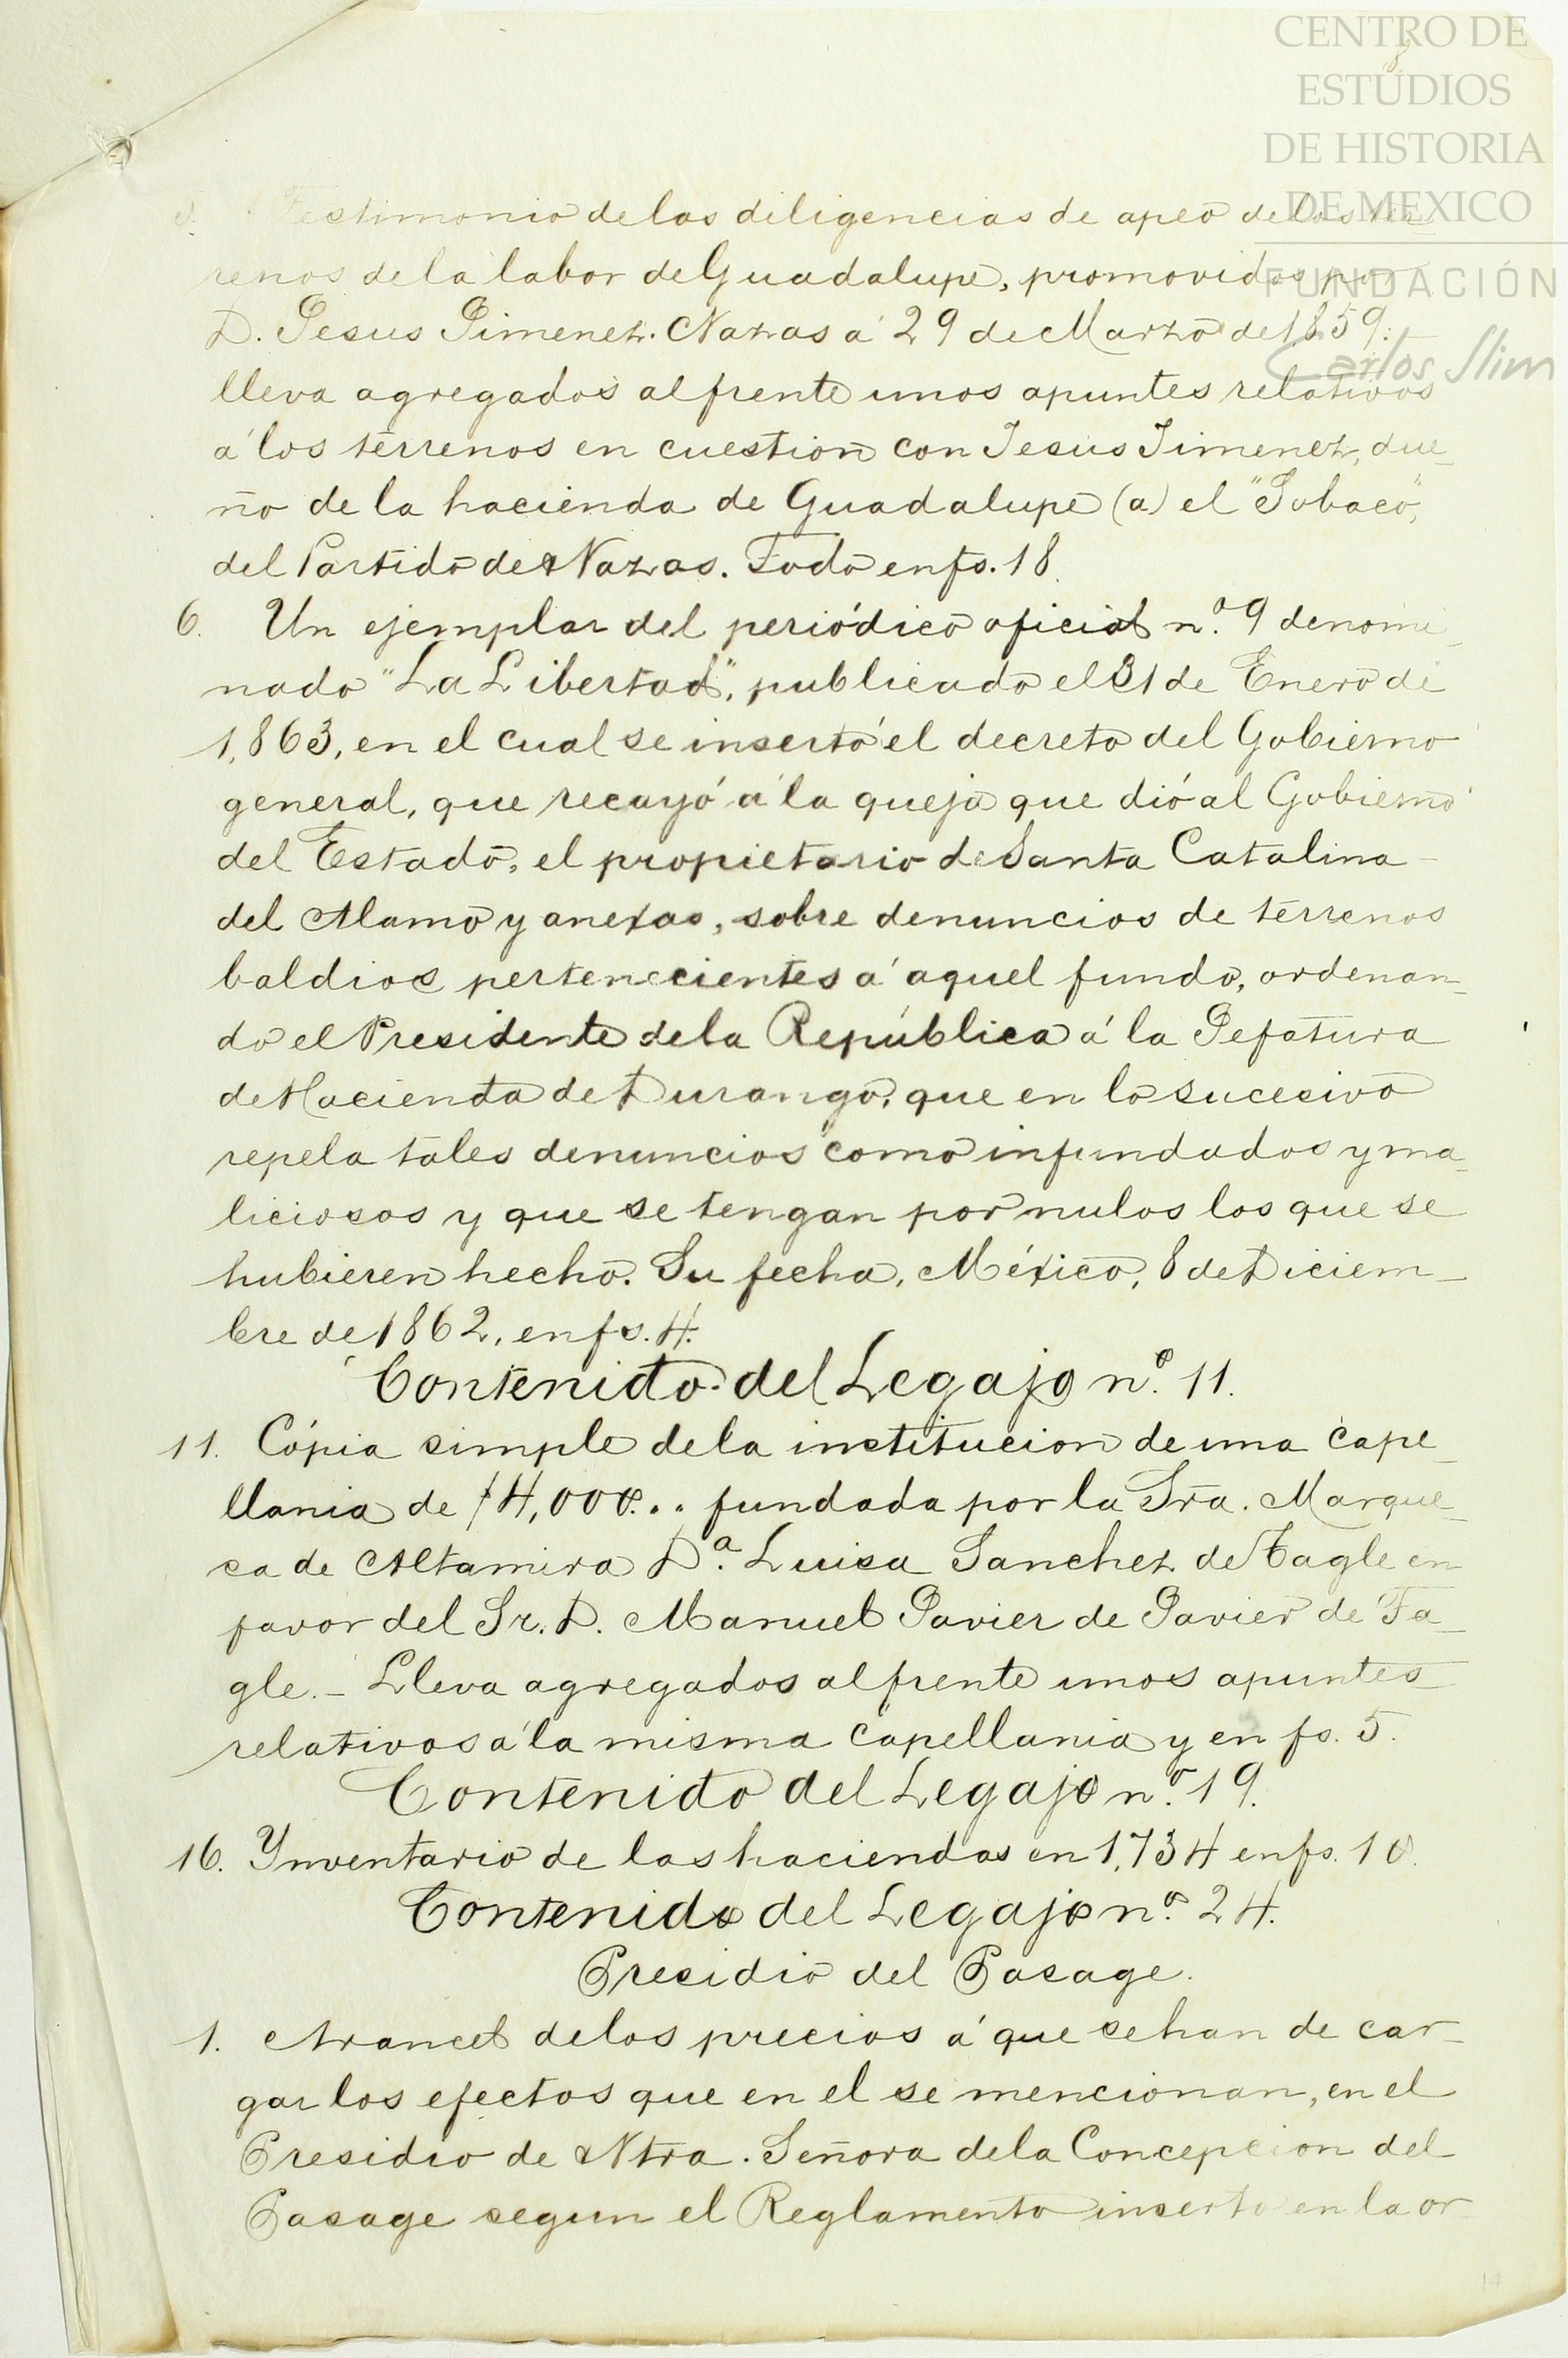 CENTRO DE
ESTUDIOS
DE HISTORIA
DE MEXICO
FUNDACIÓN
Carlos Slim
5. Testimonio de las diligencias de apeo de los ter
renos de la labor de Guadalupe, promovidas por
D. Jesus Jimenez. Nazas á 29 de Marzo de 1859:
lleva agregados al frente unos apuntes relativos
á los terrenos en cuestion con Jesus Jimenez, due_
ño de la hacienda de Guadalupe (a) el "Sobaco",
del Partido de Nazas. Todo en fs. 18.
6. Un ejemplar del periódico oficial n.º 9 denomi_
nado "La Libertad", publicado el 31 de Enero de
1,863, en el cual se insertó el decreto del Gobierno
general, que recayó á la queja que dió al Gobierno
del Estado, el propietario de Santa Catalina
del Alamo y anexas, sobre denuncios de terrenos
baldios pertenecientes á aquel fundo, ordenan_
do el Presidente de la República á la Jefatura
de Hacienda de Durango, que en lo sucesivo
repela tales denuncios como infundados y ma_
liciosos y que se tengan por nulos los que se
hubieren hecho. Su fecha, México, 8 de Diciem_
bre de 1862, en fs. 4.
Contenido del Legajo n.º 11.
11. Cópia simple de la institucion de una cape_
llania de $4,000.. fundada por la Sra. Marque_
sa de Altamira D.ª Luisa Sanchez de Tagle en
favor del Sr. D. Manuel Javier de Javier de Ta_
gle. - Lleva agregados al frente unos apuntes
relativos á la misma capellania y en fs. 5.
Contenido del Legajo n.º 19.
16. Ynventario de las haciendas en 1,734 en fs. 10.
Contenido del Legajo n.º 24.
Presidio del Pasage.
1. Arancel de los precios á que se han de car_
gar los efectos que en el se mencionan, en el
Presidio de Ntra. Señora de la Concepcion del
Pasage segun el Reglamento inserto en la or